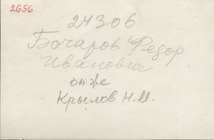 2656
24306
Бочаров Федор
Иванович
он же
Крылов Н.И.